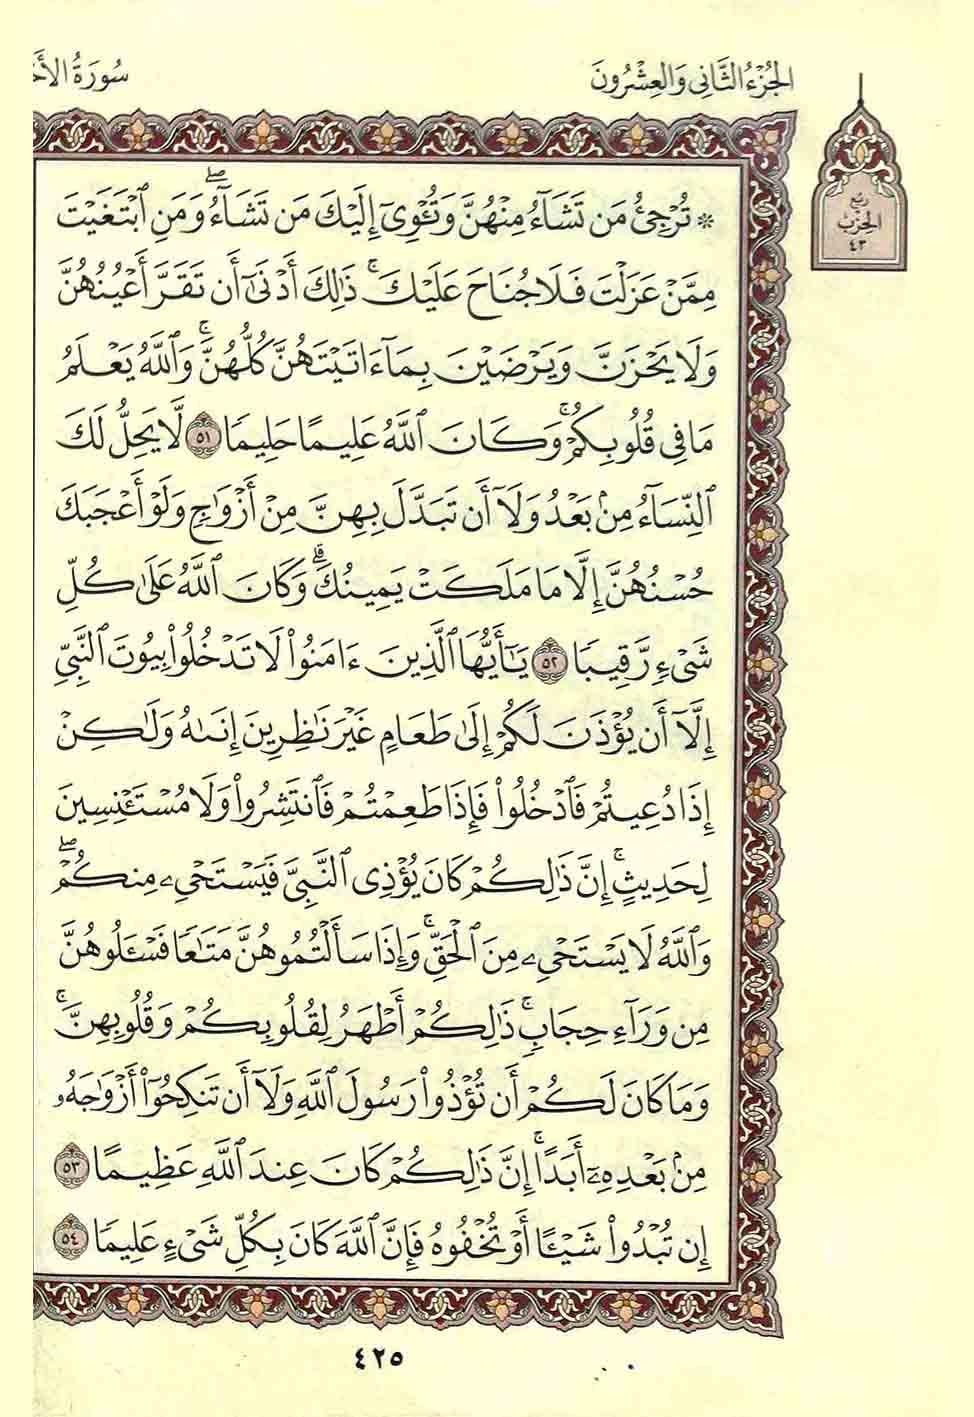 الجزء الثاني والعشرون
سورة الأح
ربع
الحزب
٤٣
* تُرْجِي مَن تَشَآءُ مِنْهُنَّ وَتُـْٔوِىٓ إِلَيْكَ مَن تَشَآءُۖ وَمَنِ ٱبْتَغَيْتَ
مِمَّنْ عَزَلْتَ فَلَا جُنَاحَ عَلَيْكَۚ ذَٰلِكَ أَدْنَىٰٓ أَن تَقَرَّ أَعْيُنُهُنَّ
وَلَا يَحْزَنَّ وَيَرْضَيْنَ بِمَآ ءَاتَيْتَهُنَّ كُلُّهُنَّۚ وَٱللَّهُ يَعْلَمُ
مَا فِى قُلُوبِكُمْۚ وَكَانَ ٱللَّهُ عَلِيمًا حَلِيمًا ٥١ لَّا يَحِلُّ لَكَ
ٱلنِّسَآءُ مِنۢ بَعْدُ وَلَآ أَن تَبَدَّلَ بِهِنَّ مِنْ أَزْوَٰجٍ وَلَوْ أَعْجَبَكَ
حُسْنُهُنَّ إِلَّا مَا مَلَكَتْ يَمِينُكَۗ وَكَانَ ٱللَّهُ عَلَىٰ كُلِّ
شَىْءٍ رَّقِيبًا ٥٢ يَـٰٓأَيُّهَا ٱلَّذِينَ ءَامَنُوا۟ لَا تَدْخُلُوا۟ بُيُوتَ ٱلنَّبِىِّ
إِلَّآ أَن يُؤْذَنَ لَكُمْ إِلَىٰ طَعَامٍ غَيْرَ نَـٰظِرِينَ إِنَىٰهُ وَلَـٰكِنْ
إِذَا دُعِيتُمْ فَٱدْخُلُوا۟ فَإِذَا طَعِمْتُمْ فَٱنتَشِرُوا۟ وَلَا مُسْتَـْٔنِسِينَ
لِحَدِيثٍۚ إِنَّ ذَٰلِكُمْ كَانَ يُؤْذِى ٱلنَّبِىَّ فَيَسْتَحْىِۦ مِنكُمْۖ
وَٱللَّهُ لَا يَسْتَحْىِۦ مِنَ ٱلْحَقِّۚ وَإِذَا سَأَلْتُمُوهُنَّ مَتَـٰعًا فَسْـَٔلُوهُنَّ
مِن وَرَآءِ حِجَابٍۚ ذَٰلِكُمْ أَطْهَرُ لِقُلُوبِكُمْ وَقُلُوبِهِنَّۚ
وَمَا كَانَ لَكُمْ أَن تُؤْذُوا۟ رَسُولَ ٱللَّهِ وَلَآ أَن تَنكِحُوٓا۟ أَزْوَٰجَهُۥ
مِنۢ بَعْدِهِۦٓ أَبَدًاۚ إِنَّ ذَٰلِكُمْ كَانَ عِندَ ٱللَّهِ عَظِيمًا ٥٣
إِن تُبْدُوا۟ شَيْـًٔا أَوْ تُخْفُوهُ فَإِنَّ ٱللَّهَ كَانَ بِكُلِّ شَىْءٍ عَلِيمًا ٥٤
٤٢٥